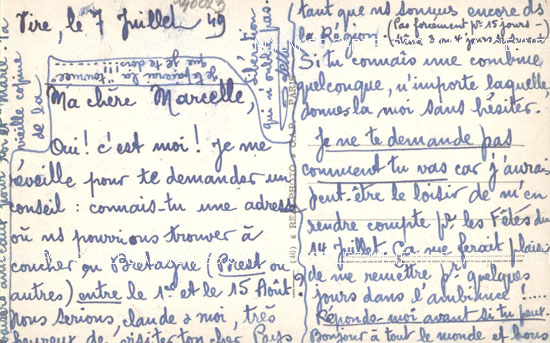 Vire, le 7 Juillet 49
Ma chère Marcelle,
Oui ! c'est moi ! Je me
réveille pour te demander un
conseil : connais-tu une adresse
où ns pourrions trouver à
coucher en Bretagne (Brest ou
autres) entre le 1er et le 15 Août ?
nous serions, claude & moi, très
heureux de visiter ton cher Pays
tant que ns sommes encore ds
la Région. (Pas forcément pr 15 jours -
3 ou 4 jours
Si tu connais une combine
quelconque, n'importe laquelle,
donnes la moi sans hésiter.
Je ne te demande pas
comment tu vas car j'aurais
peut-être le loisir de m'en
rendre compte pr les Fêtes du
14 Juillet. Ça me ferait plaisir
de me remettre pr quelques
jours dans l'ambiance !....
Réponds-moi avant si tu peux.
Bonjour à tout le monde et bons
baisers amicaux pour toi et Marie
de la
vieille copine
qui n'oublie pas.